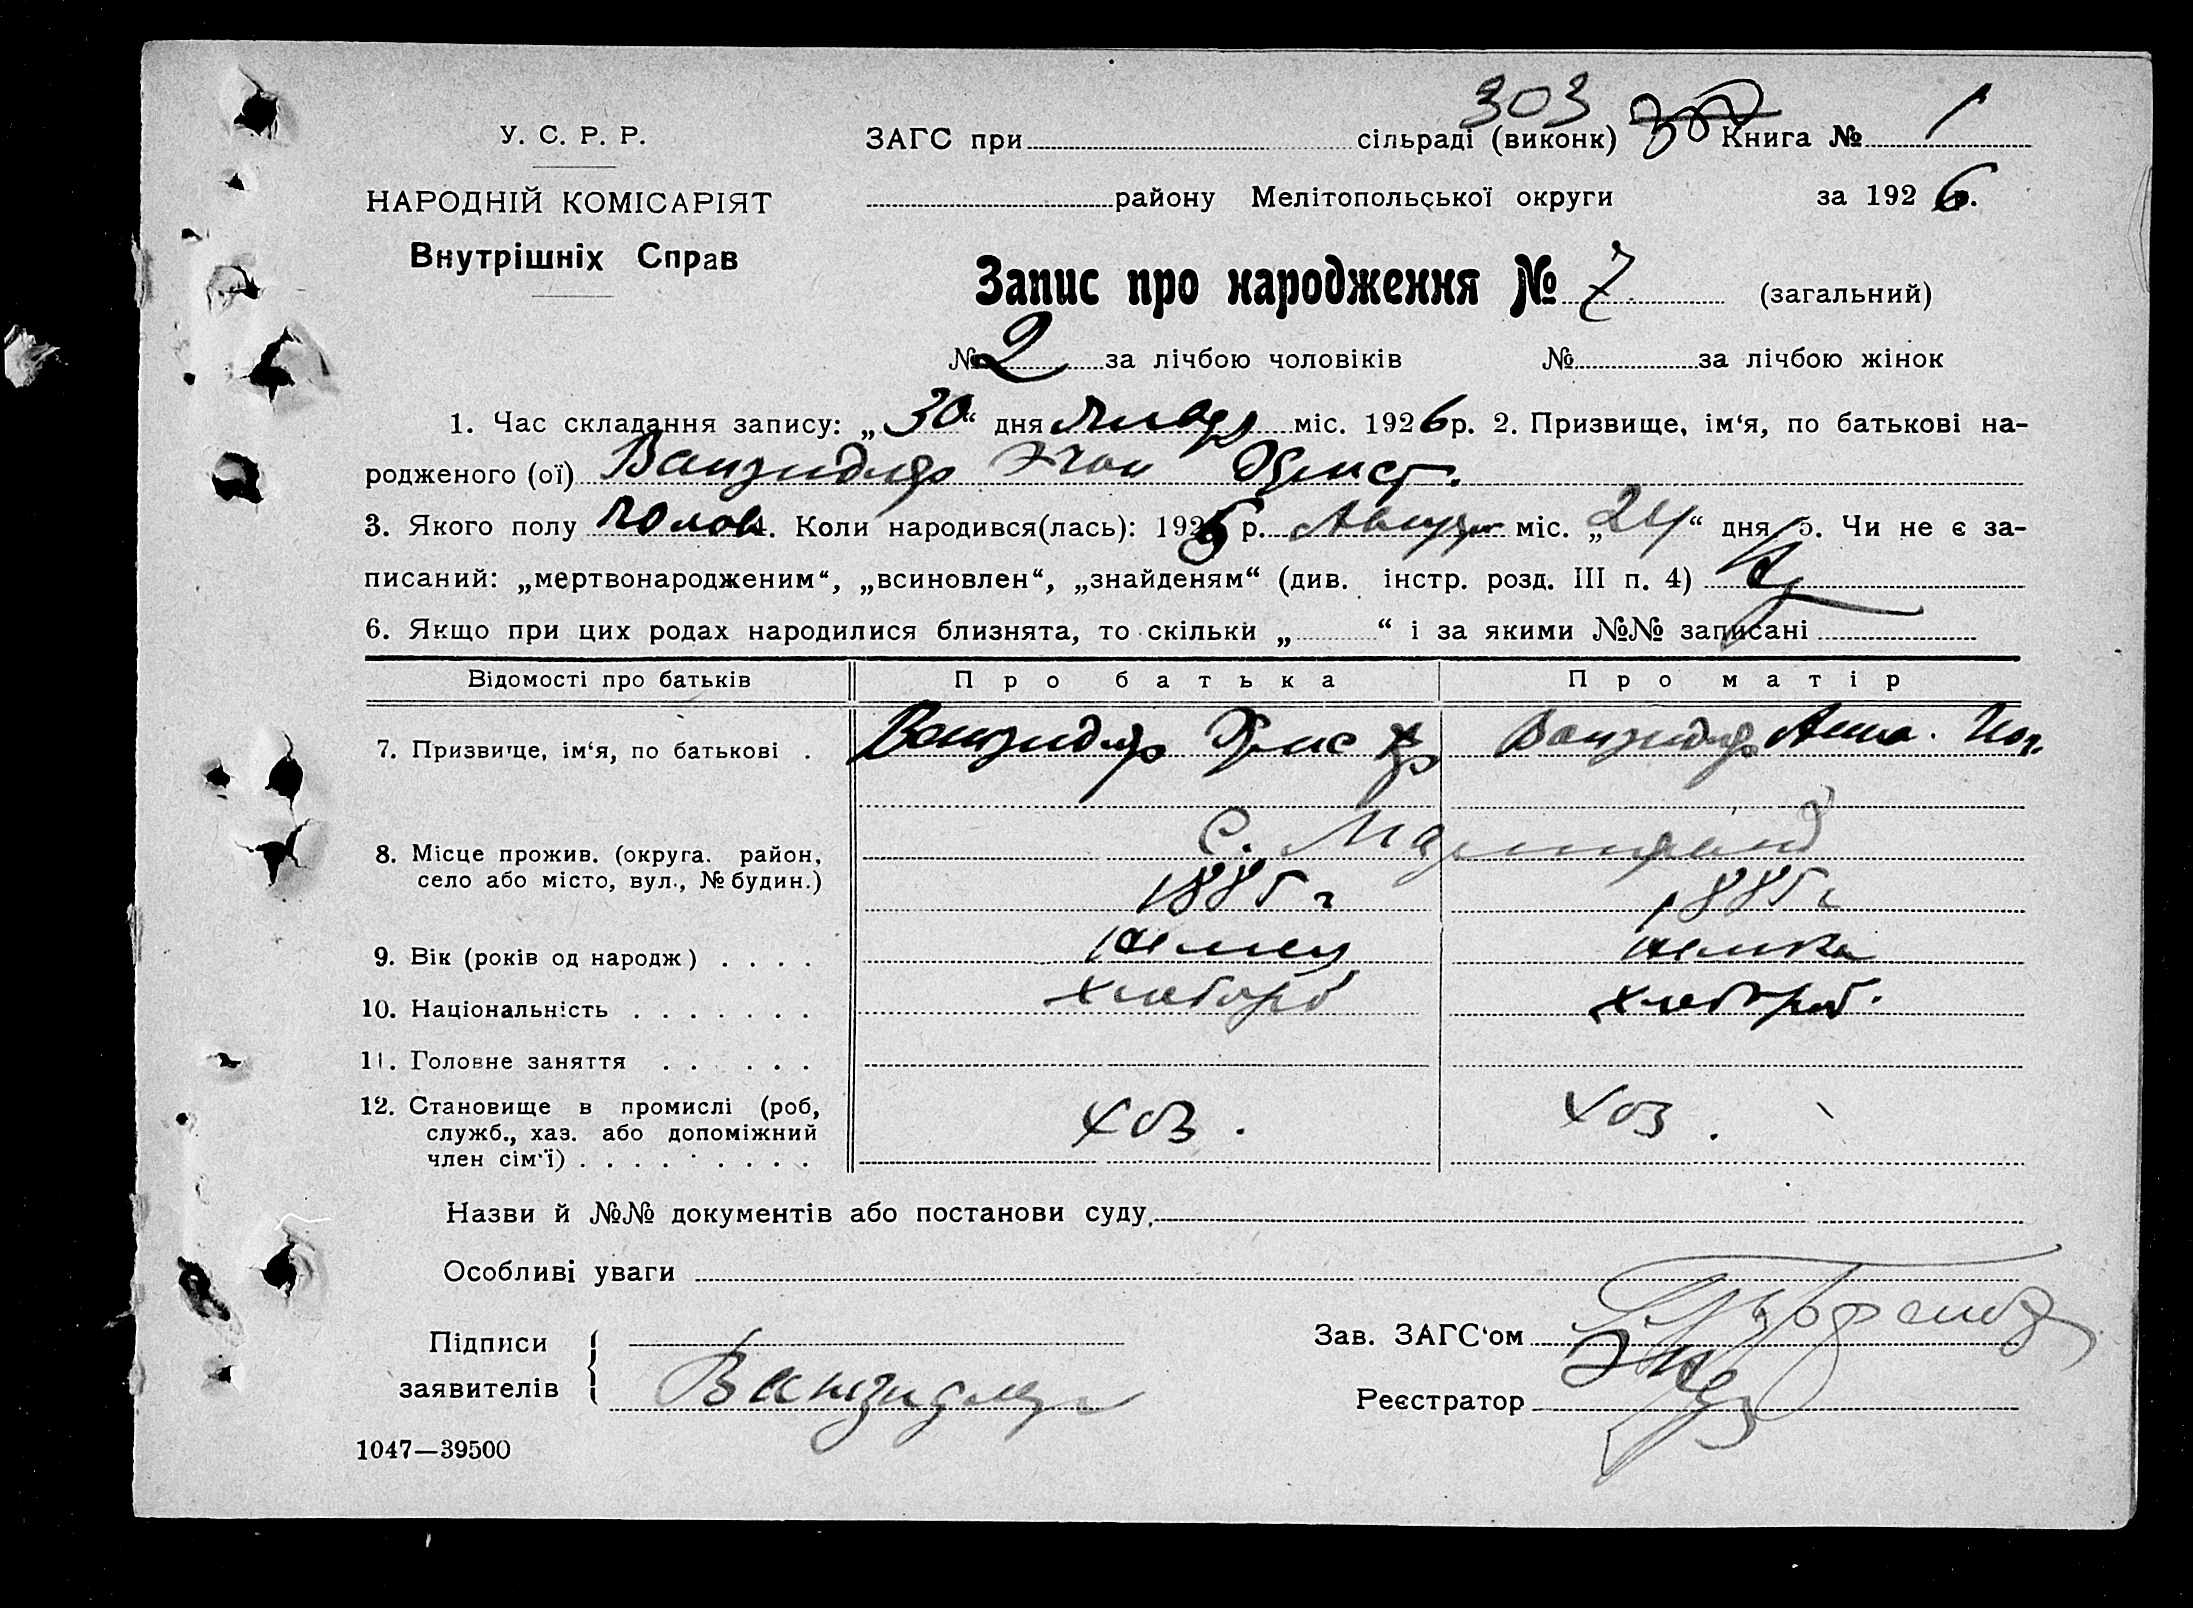 303
У. С. Р. Р. ЗАГС при сільраді (виконк) Книга № 1
НАРОДНІЙ КОМІСАРІЯТ району Мелітопольської округи за 1926.
Внутрішніх Справ
Запис про народження № 7 (загальний)
№ 2 за лічбою чоловіків № за лічбою жінок
1. Час складання запису: „30“ дня міс. 1926 р. 2. Призвище, ім‘я, по батькові на-
родженого (ої)
3. Якого полу чолов 4. Коли народився(лась): 1925 р. Август міс. „24“ дня 5. Чи не є за-
писаний: „мертвонародженим“, „всиновлен“, „знайденям“ (див. інстр. розд. III п. 4)
6. Якщо при цих родах народилися близнята, то скільки „ “ і за якими №№ записані
Відомості про батьків Про батька Про матір
7. Призвище, ім‘я, по батькові . Анна.
С.
8. Місце прожив. (округа. район,
село або місто, вул., № будин.) 1885 г 1885 г
9. Вік (років од народж) . . . . немец немка
10. Національність . . . . . . . хлебороб хлебороб.
11. Головне заняття . . . . . .
12. Становище в промислі (роб,
служб., хаз. або допоміжний хоз. хоз.
член сім‘ї) . . . . . . . . .
Назви й №№ документів або постанови суду
Особливі уваги
Підписи Зав. ЗАГС‘ом
заявителів Реєстратор
1047—39500